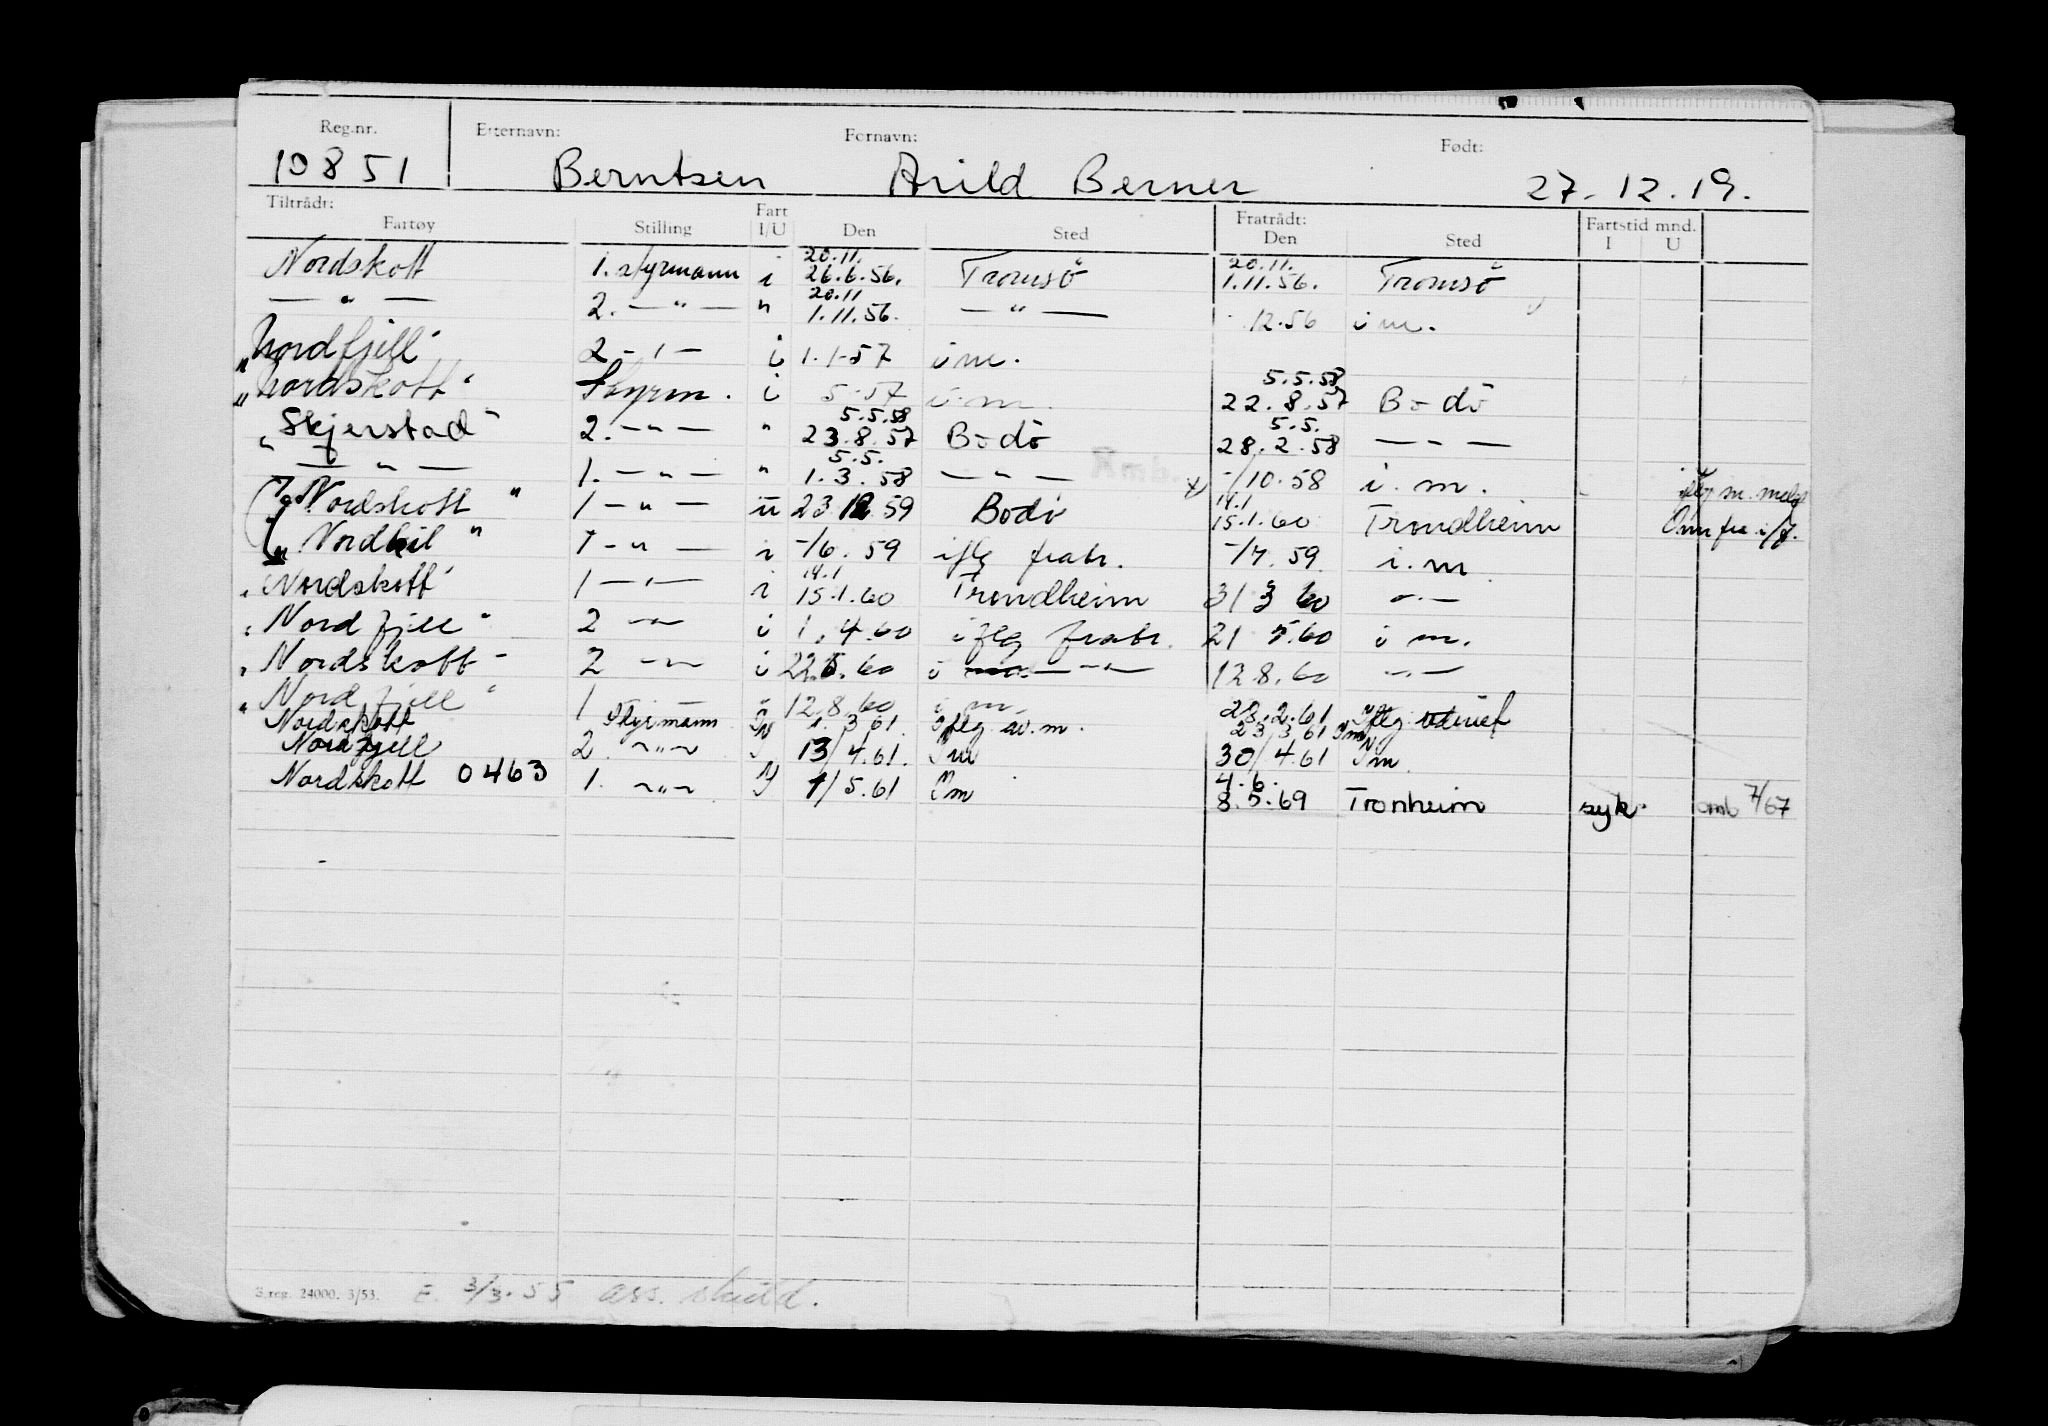 Reg.nr. Etternavn: Fornavn: Født:
10851 Berntsen Arild Berner 27.12.19.
Tiltrådt: Fartøy Stilling Fart I/U Den Sted Fratrådt: Den Sted Fartstid mnd. I U
Nordskott 1. styrmann i 20.11. 26.6.56. Tromsö 20.11. 1.11.56. Tromsö
— " — 2. — " — " 20.11 1.11.56. — " — 12.56 i m.
"Nordfjell" 2 - " - i 1.1-57 i m.
"Nordskott" Styrm. i 5.57 i. m. 5.5.58 22.8.57 Bodö
"Skjerstad" 2. - " - " 5.5.58 23.8.57 Bodö 5.5. 28.2.58 — " —
— " — 1. — " — " 5.5. 1.3.58 — " — -/10.58 i. m. iflg m. meld
"Nordskott" 1 — " — u 23.12.59 Bodö 14.1 15.1.60 Trondheim
"Nordhil" 1 - " — i -/6.59 iflg fratr. -/7.59. i. m.
"Nordskott" 1 — " — i 14.1 15.1.60 Trondheim 31 3 60 - " -
"Nordfjell" 2 - " - i 1.4.60 iflg fratr. 21 5.60 i m.
"Nordskott" 2 - " - i 22.5.60 i — " — 12.8.60 - " -
"Nordfjell" 1 - 12.8.60 i m. 28.2.61 Iflg
Nordskott Styrmann I 1.3 61. Iflg av. m. 23/3 61 Im
Nordfjell 2. - " - I 13/4.61. Im 30/4.61 Im.
Nordskott 0463 1. - " - I 1/5.61 Im 4.6. 8.5.69 Tronheim syk. omb 7/67
S.reg. 24000. 3/53. E. 3/3.55 ass. skuld.